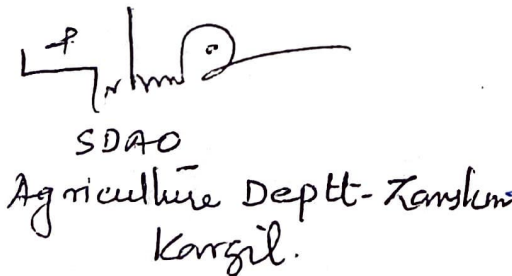 SDAO
Agriculture Deptt- Zanskar
Kargil.